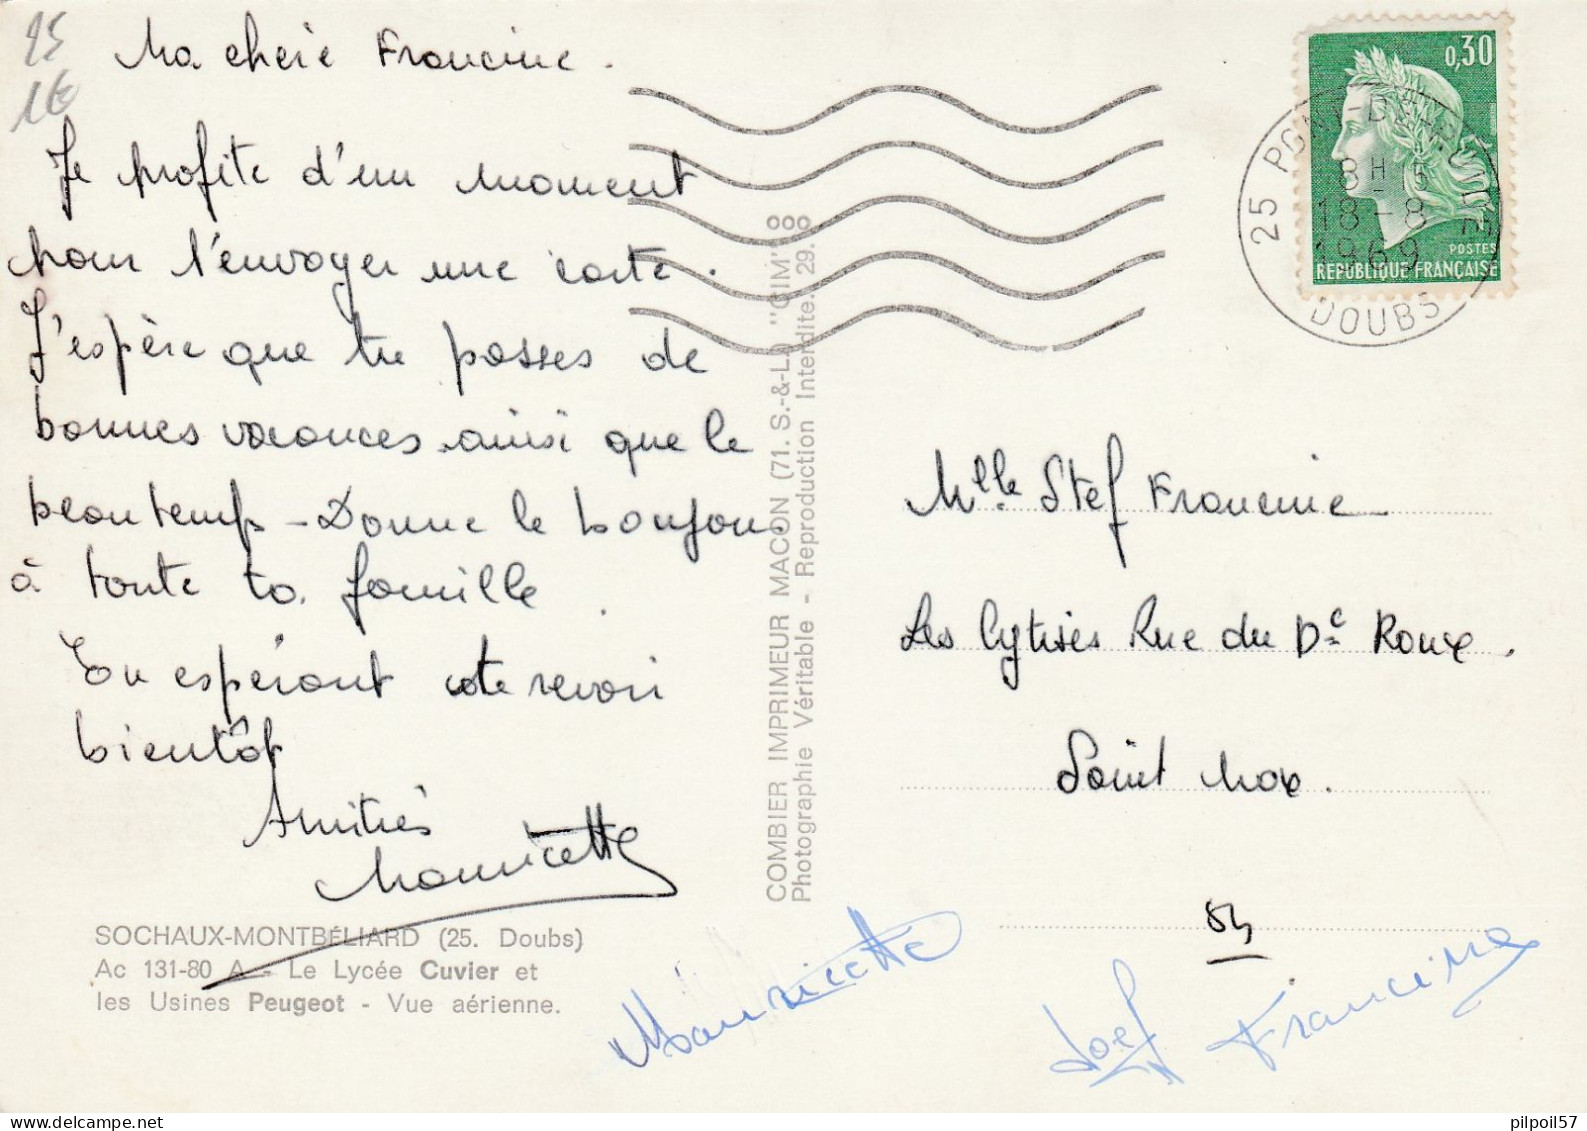 25
1€
Ma chère Francine.
Je profite d'un moment
pour t'envoyer une carte.
J'espère que tu passes de
bonnes vacances ainsi que le
beau temps - Donne le bonjour
à toute ta famille.
En espérant te revoir
bientôt
Amitiés
Mauricette
SOCHAUX-MONTBÉLIARD (25. Doubs)
Ac 131-80 A - Le Lycée Cuvier et
les Usines Peugeot - Vue aérienne.
COMBIER IMPRIMEUR MACON (71. S.-&-L.) "CIM"
Photographie Véritable - Reproduction Interdite. 29.
0,30
POSTES
RÉPUBLIQUE FRANÇAISE
25 PONT-DE-ROIDE
8H15
18-8
1969
DOUBS
Mlle Stef Francine
Les Cytises Rue du Dr Roux.
Saint Max.
54
Mauricette
Francine
pilpoil57